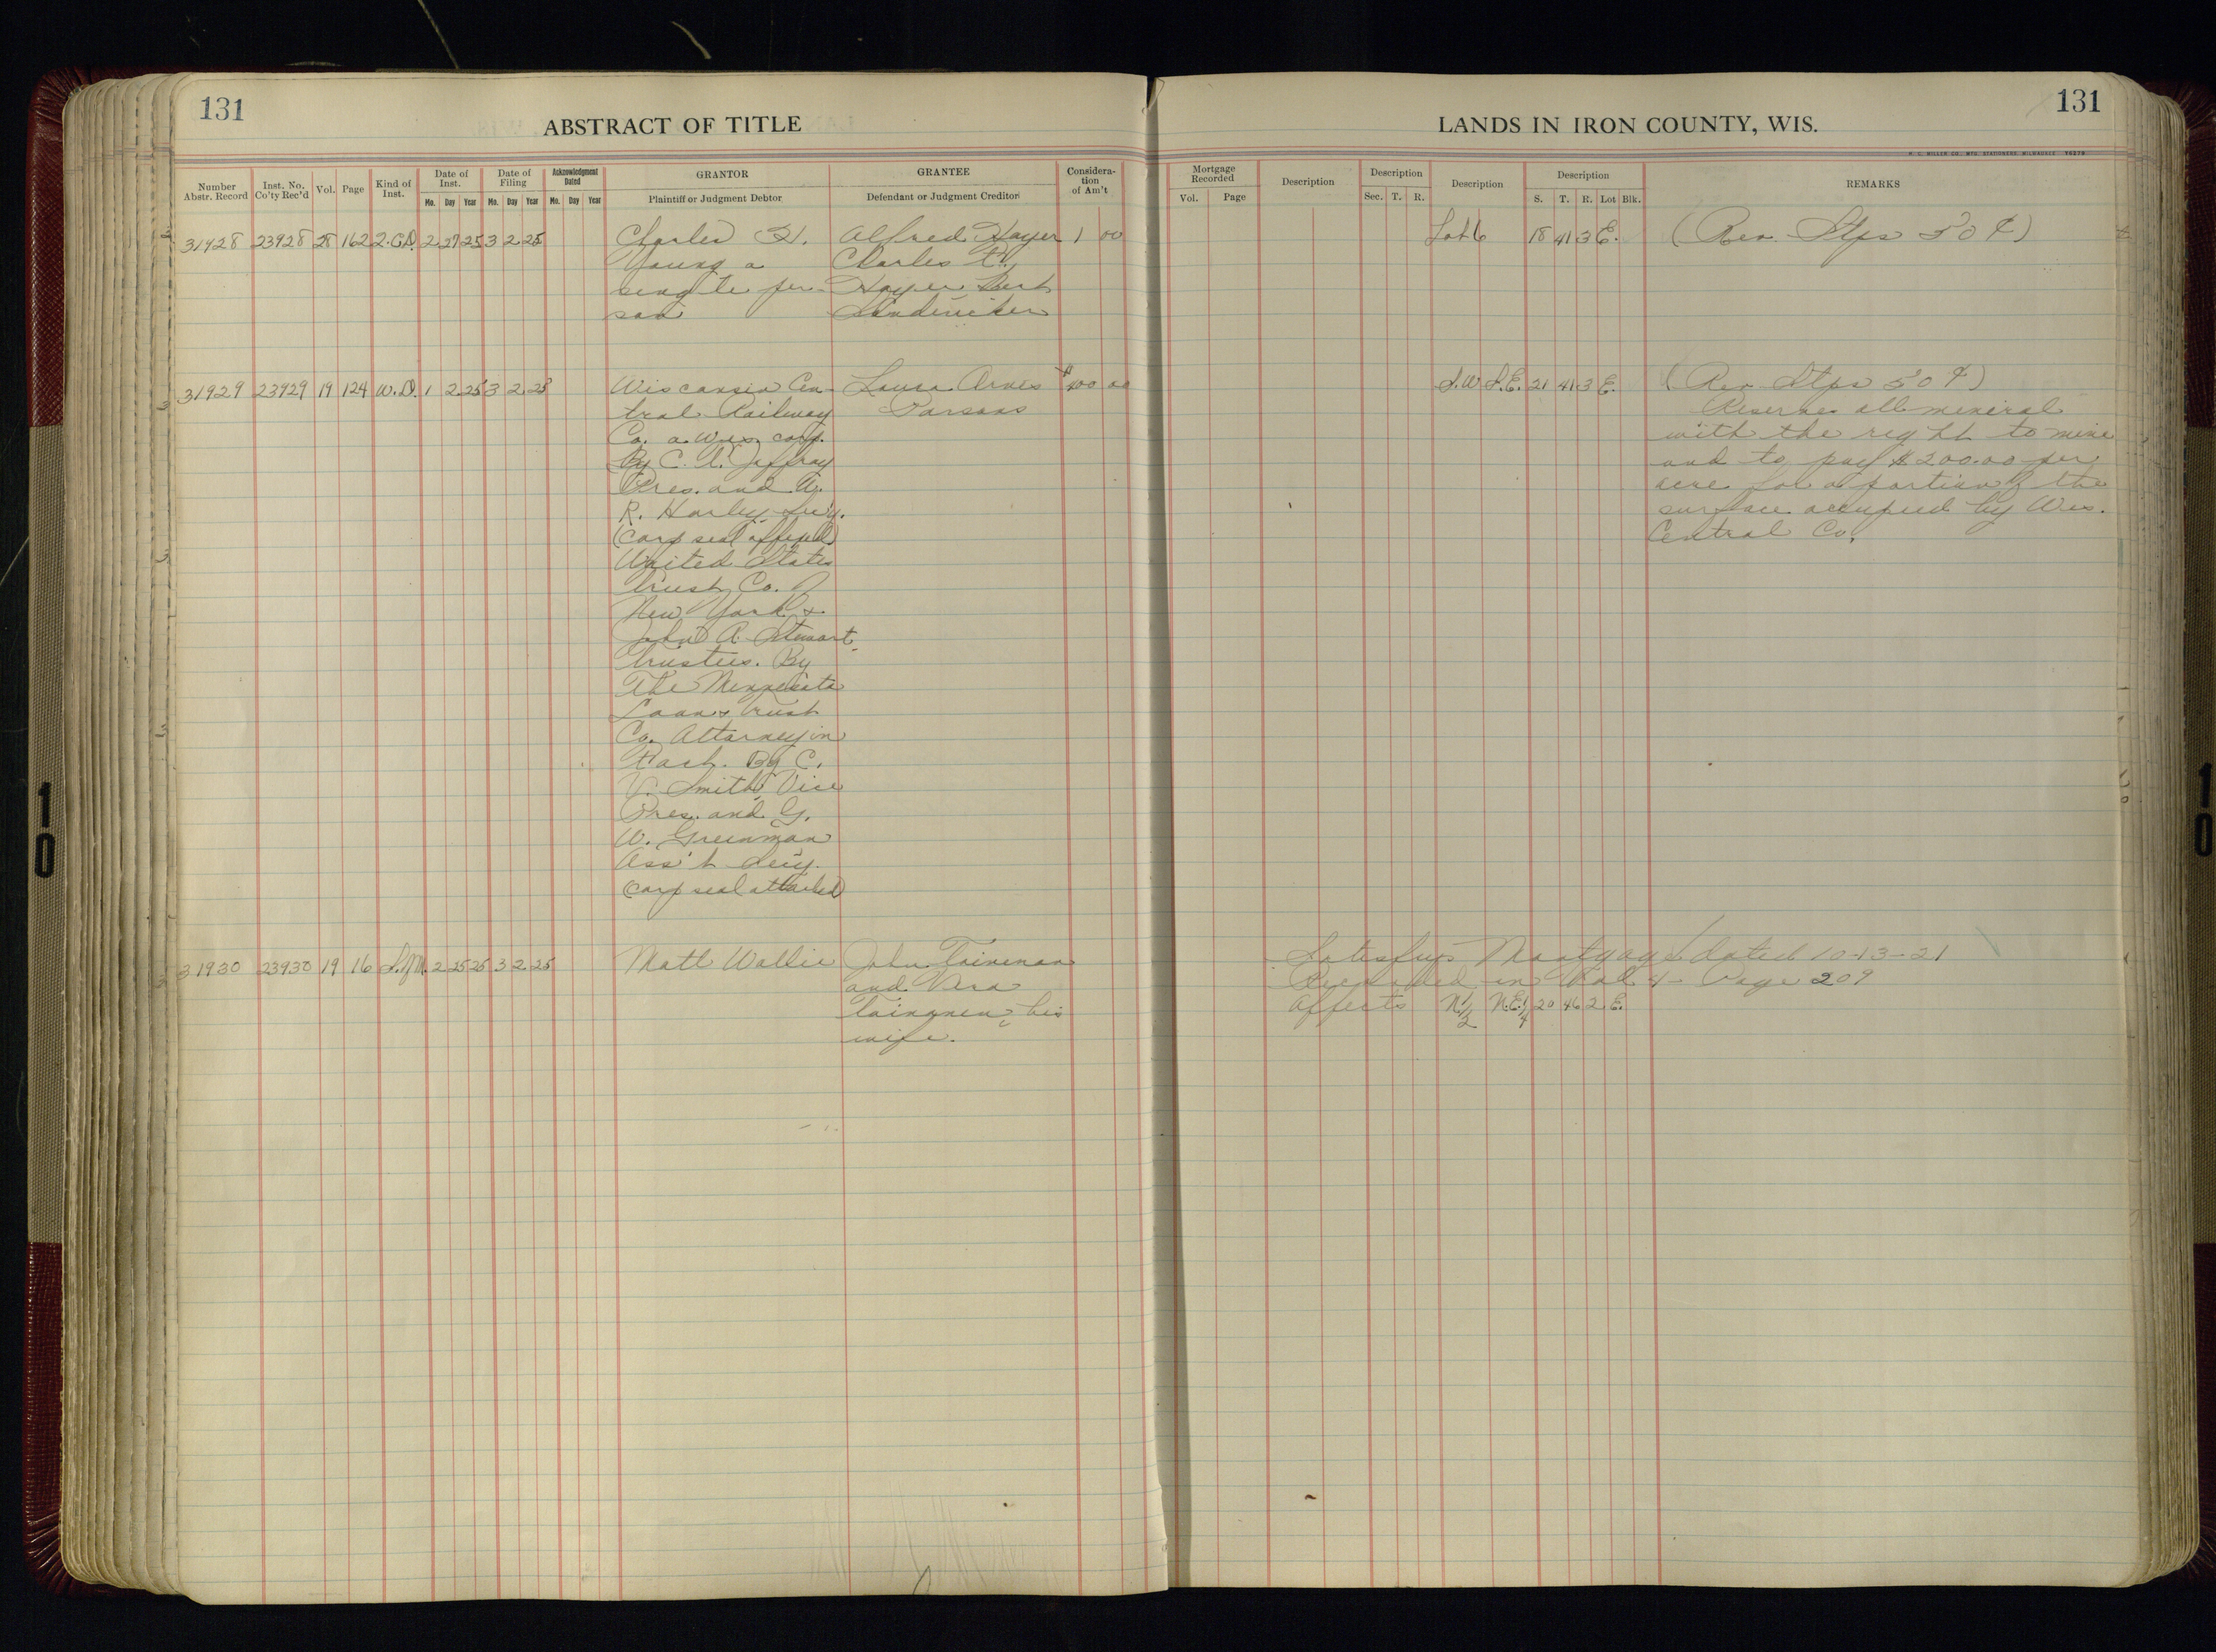 131
ABSTRACT OF TITLE
LANDS IN IRON COUNTY, WIS.
131
Number Abstr. Record
Inst. No. Co'ty Rec'd
Vol.
Page
Kind of Inst.
Date of Inst.
Mo. Day Year
Date of Filing
Mo. Day Year
Acknowledgment Dated
Mo. Day Year
GRANTOR
Plaintiff or Judgment Debtor
GRANTEE
Defendant or Judgment Creditor
Considera-
tion
of Am't
Mortgage Recorded
Vol. Page
Description
Description
Sec. T. R.
Description
Description
S. T. R. Lot Blk.
REMARKS
31928 23928 28 162 Q.C.D. 2 27 25 3 2 25
Charles H.
Young a
single per-
son
Alfred Hoyer
Charles
Hoyer
1 00
Lot 6 18 41 3 E.
(Rev. Stps 50 ¢)
31929 23929 19 124 W.D. 1 2 25 3 2 25
Wisconsin Cen-
tral Railway
Co. a Wis. corp.
By C. T. Jaffray
Pres. and
R. Harley Sec'y.
(Corp seal affixed)
United States
Trust Co. of
New York &
John A. Stewart
Trustees. By
The Minnesota
Loan & Trust
Co. Attorney in
Fact. By C.
V. Smith Vice
Pres. and G.
W. Greenman
Ass't Sec'y.
(Corp seal attached)
Laura Arnes
Parsons
$400 00
S.W. S.E. 21 41 3 E.
(Rev. Stps 50 ¢)
Reserves all mineral
with the right to mine
and to pay $200.00 per
acre for a portion of the
surface occupied by Wis.
Central Co.
31930 23930 19 16 S.M. 2 25 25 3 2 25
Matt Wallie
John
and
his
wife.
Satisfys Mortgage dated 10-13-21
Recorded in Vol 4- Page 209
Affects N 1/2 N.E. 1/4 20 46 2 E.
10
10